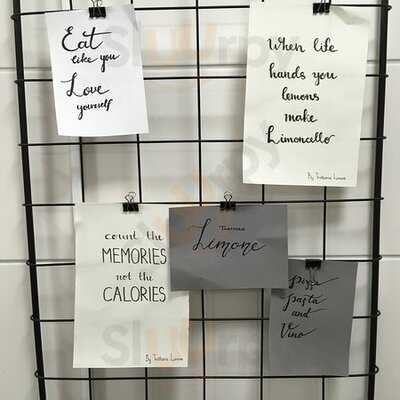 Eat
like you
Love
yourself
When life
hands you
lemons
make
Limoncello
By Trattoria Limone
count the
MEMORIES
not the
CALORIES
By Trattoria Limone
Trattoria
Limone
pizza
pasta
and
Vino
Sluurpy